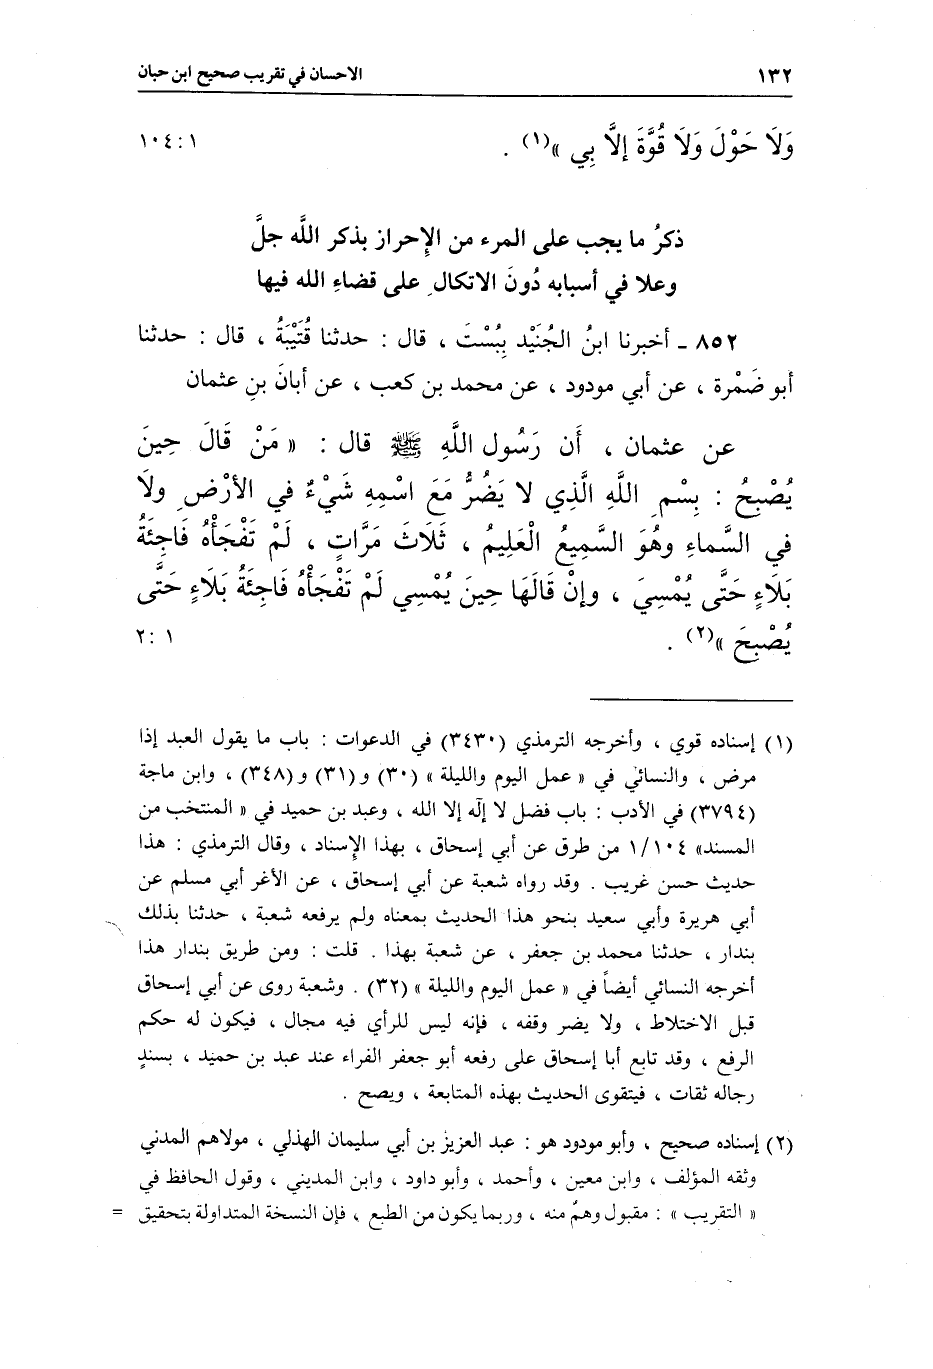 ١٣٢ الاحسان في تقريب صحيح ابن حبان
وَلَا حَوْلَ وَلَا قُوَّةَ إلَّا بِي »(١) . ١ : ١٠٤
ذكرُ ما يجب على المرء من الإحراز بذكر اللَّه جلَّ
وعلا في أسبابه دُونَ الاتكالِ على قضاءِ الله فيها
٨٥٢ ـ أخبرنا ابنُ الجُنَيْد بِبُسْتَ ، قال : حدثنا قُتَيْبَةُ ، قال : حدثنا
أبو ضَمْرة ، عن أبي مودود ، عن محمد بن كعب ، عن أبانَ بنِ عثمان
عن عثمان ، أن رَسُول اللَّهِ ﷺ قال : « مَنْ قَالَ حِينَ
يُصْبِحُ : بِسْمِ اللَّهِ الَّذِي لا يَضُرُّ مَعَ اسْمِهِ شَيْءٌ في الأرْضِ ولَا
في السَّماءِ وهُوَ السَّمِيعُ الْعَلِيمُ ، ثَلَاثَ مَرَّاتٍ ، لَمْ تَفْجَأْهُ فَاجِئَةُ
بَلَاءٍ حَتَّى يُمْسِيَ ، وإنْ قَالَهَا حِينَ يُمْسِي لَمْ تَفْجَأْهُ فَاجِئَةُ بَلَاءٍ حَتَّى
يُصْبِحَ »(٢) . ١ : ٢
(١) إسناده قوي ، وأخرجه الترمذي (٣٤٣٠) في الدعوات : باب ما يقول العبد إذا
مرض ، والنسائي في « عمل اليوم والليلة » (٣٠) و(٣١) و(٣٤٨) ، وابن ماجة
(٣٧٩٤) في الأدب : باب فضل لا إلٰه إلا الله ، وعبد بن حميد في « المنتخب من
المسند» ١/١٠٤ من طرق عن أبي إسحاق ، بهذا الإسناد ، وقال الترمذي : هذا
حديث حسن غريب . وقد رواه شعبة عن أبي إسحاق ، عن الأغر أبي مسلم عن
أبي هريرة وأبي سعيد بنحو هذا الحديث بمعناه ولم يرفعه شعبة ، حدثنا بذلك
بندار ، حدثنا محمد بن جعفر ، عن شعبة بهذا . قلت : ومن طريق بندار هذا
أخرجه النسائي أيضاً في « عمل اليوم والليلة » (٣٢) . وشعبة روى عن أبي إسحاق
قبل الاختلاط ، ولا يضر وقفه ، فإنه ليس للرأي فيه مجال ، فيكون له حكم
الرفع ، وقد تابع أبا إسحاق على رفعه أبو جعفر الفراء عند عبد بن حميد ، بسندٍ
رجاله ثقات ، فيتقوى الحديث بهذه المتابعة ، ويصح .
(٢) إسناده صحيح ، وأبو مودود هو : عبد العزيز بن أبي سليمان الهذلي ، مولاهم المدني
وثقه المؤلف ، وابن معين ، وأحمد ، وأبو داود ، وابن المديني ، وقول الحافظ في
« التقريب » : مقبول وهمٌ منه ، وربما يكون من الطبع ، فإن النسخة المتداولة بتحقيق =